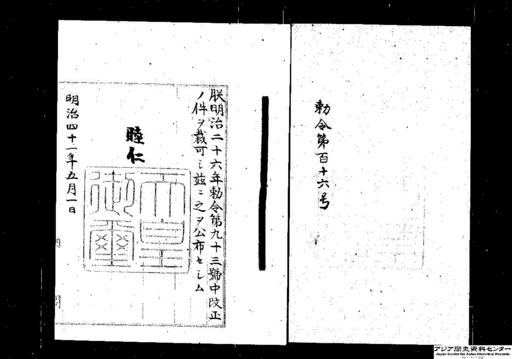 勅令第百十六号
朕明治二十六年勅令第九十三號中改正
ノ件ヲ裁可シ茲ニ之ヲ公布セシム
睦仁
天皇
御璽
明治四十一年五月一日
アジア歴史資料センター
Japan Center for Asian Historical Records